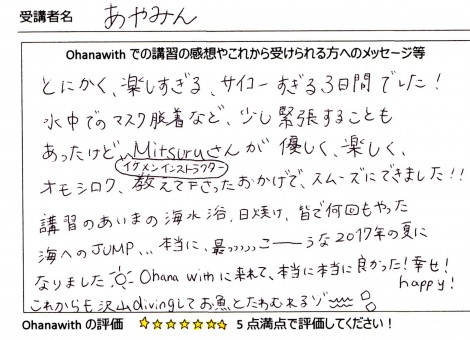 受講者名 あやみん
Ohanawith での講習の感想やこれから受けられる方へのメッセージ等
とにかく、楽しすぎる、サイコーすぎる3日間でした!
水中でのマスク脱着など、少し緊張することも
あったけど、Mitsuruさんが 優しく、楽しく、
イケメンインストラクター
オモシロク、教えて下さったおかげで、スムーズにできました!!
講習のあいまの海水浴、日焼け、皆で何回もやった
海へのJUMP... 本当に、最っっっっこーーうな2017年の夏に
なりました Ohana withに来れて、本当に本当に良かった!幸せ!
happy!
これからも沢山divingしてお魚とたわむれるゾ〜
Ohanawith の評価 ★★★★★★★ 5 点満点で評価してください!